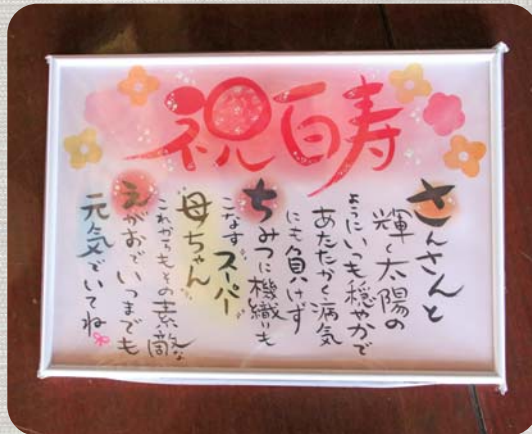 祝百寿
さんさんと
輝く太陽の
ようにいつも穏やかで
あたたかく病気
にも負けず
ちみつに機織りも
こなすスーパー
母ちゃん
これからもその素敵な
えがおでいつまでも
元気でいてね